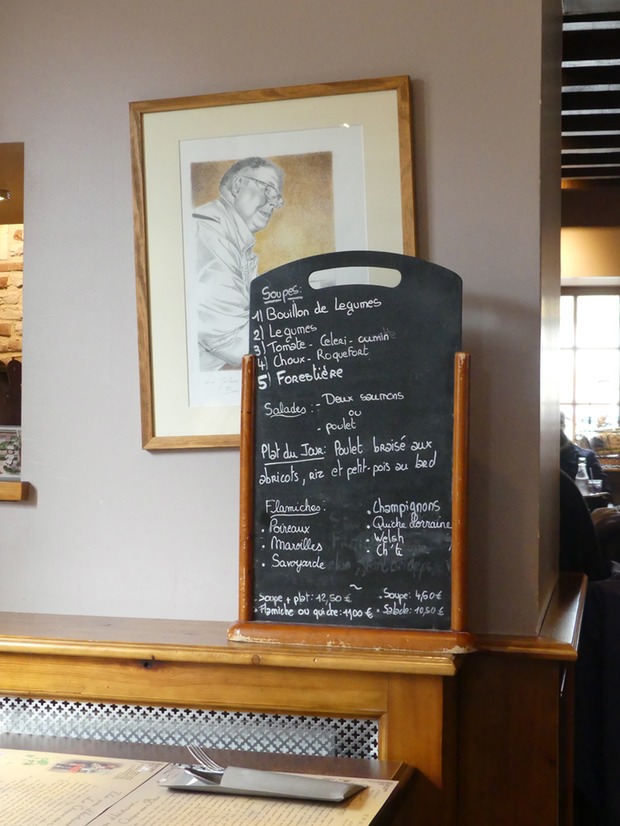 Soupes:
1) Bouillon de Legumes
2) Legumes
3) Tomate - Celeri - cumin
4) Choux - Roquefort
5) Forestière
Salades: - Deux saumons
ou
- poulet
Plat du Jour: Poulet braisé aux
abricots, riz et petit-pois au lard
Flamiches:
• Poireaux
• Maroilles
• Savoyarde
• Champignons
• Quiche Lorraine
• Welsh
• Ch'ti
~
• Soupe + plat: 12,50 €
• Flamiche ou quiche: 11,00 €
• Soupe: 4,60 €
• Salade: 10,50 €